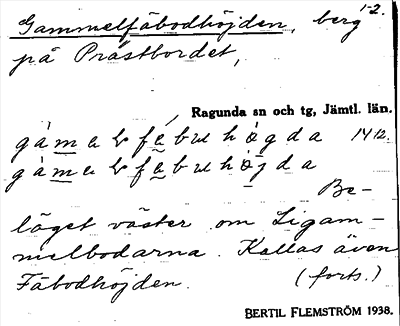 1-2.
Gammelfäbodhöjden, berg
på Prästbordet,
Ragunda sn och tg, Jämtl. län.
14/12.
Be-
läget väster om Ligam-
melbodarna. Kallas även
Fäbodhöjden. (forts.)
BERTIL FLEMSTRÖM 1938.